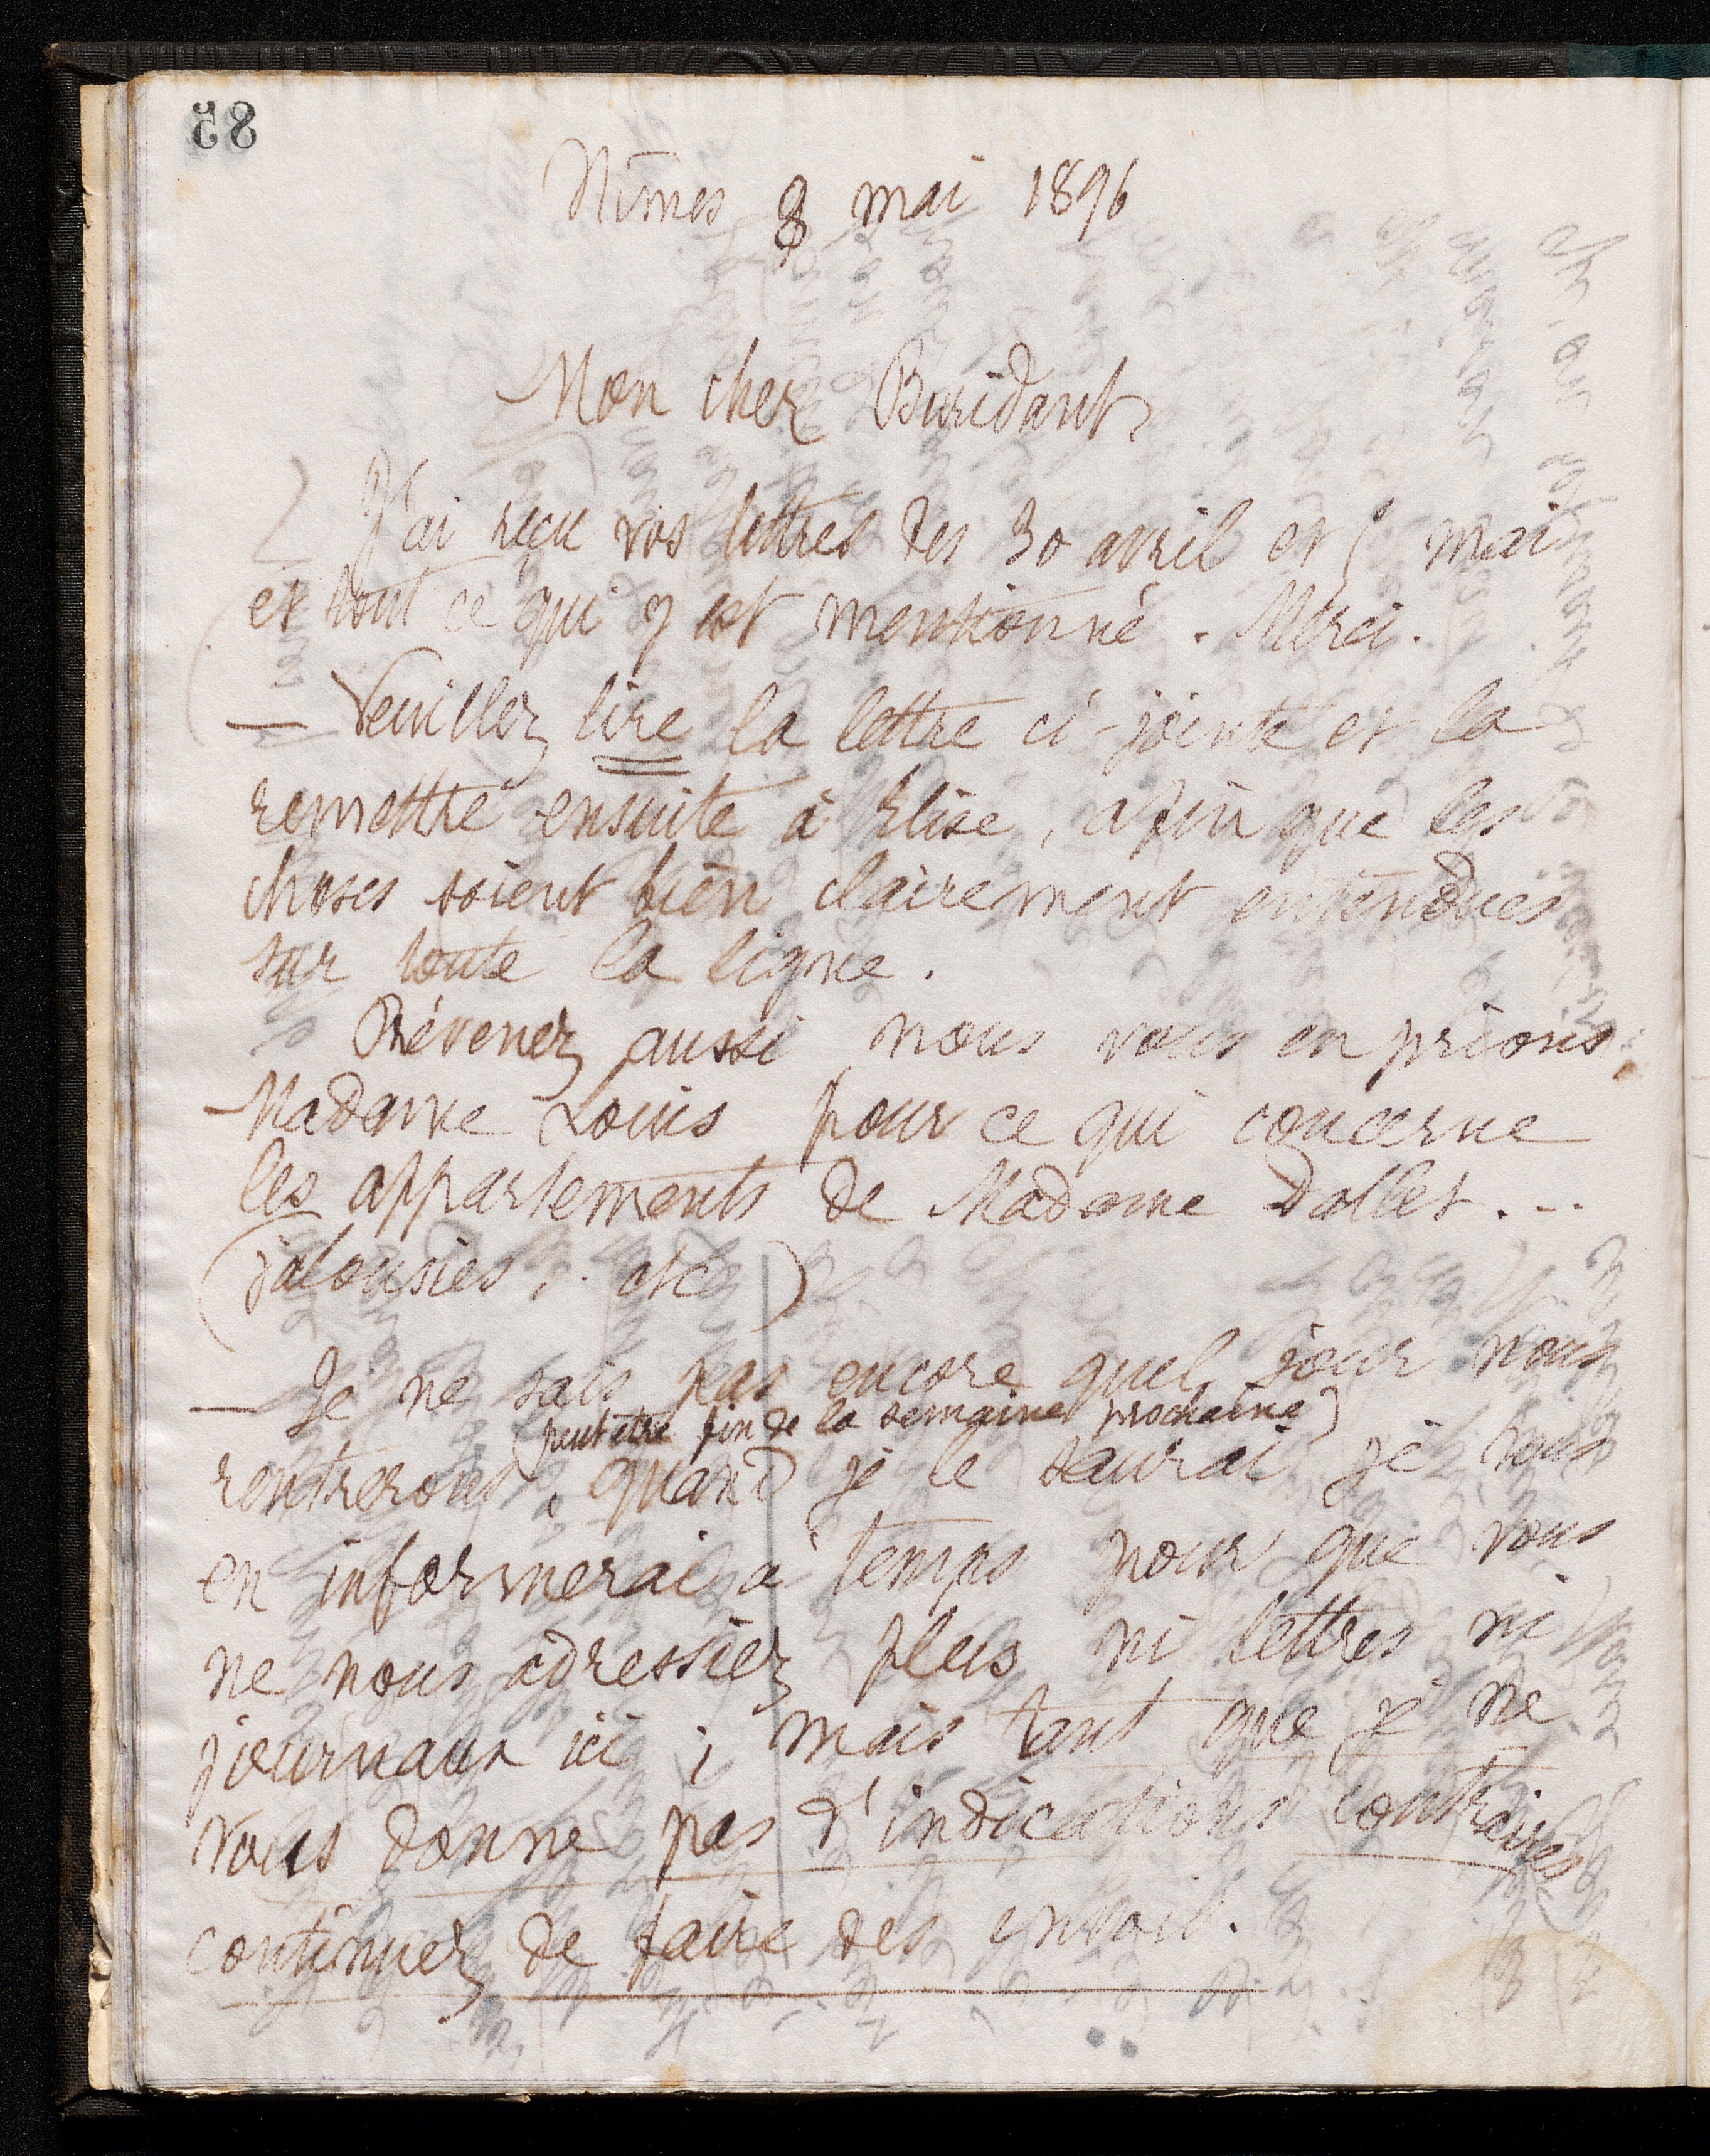 58
Nîmes 8 mai 1896
Mon cher Buridant
J'ai reçu vos lettres des 30 avril et 5 mai
et tout ce qui y est mentionné. Merci.
— Veuillez lire la lettre ci-jointe et la
remettre ensuite à Elise, afin que les
choses soient bien clairement entendues
sur toute la ligne.
Prévenez aussi nous vous en prions
Madame Louis pour ce qui concerne
les appartements de Madame Dallet...
(jalousies, . etc)
— Je ne sais pas encore quel jour nous
(peut être fin de la semaine prochaine)
rentrerons, quand je le saurai je vous
en informerai à temps pour que vous
ne nous adressiez plus ni lettres ni
journaux ici ; mais tant que je ne
vous donne pas d'indications contraires
continuez de faire des envois.